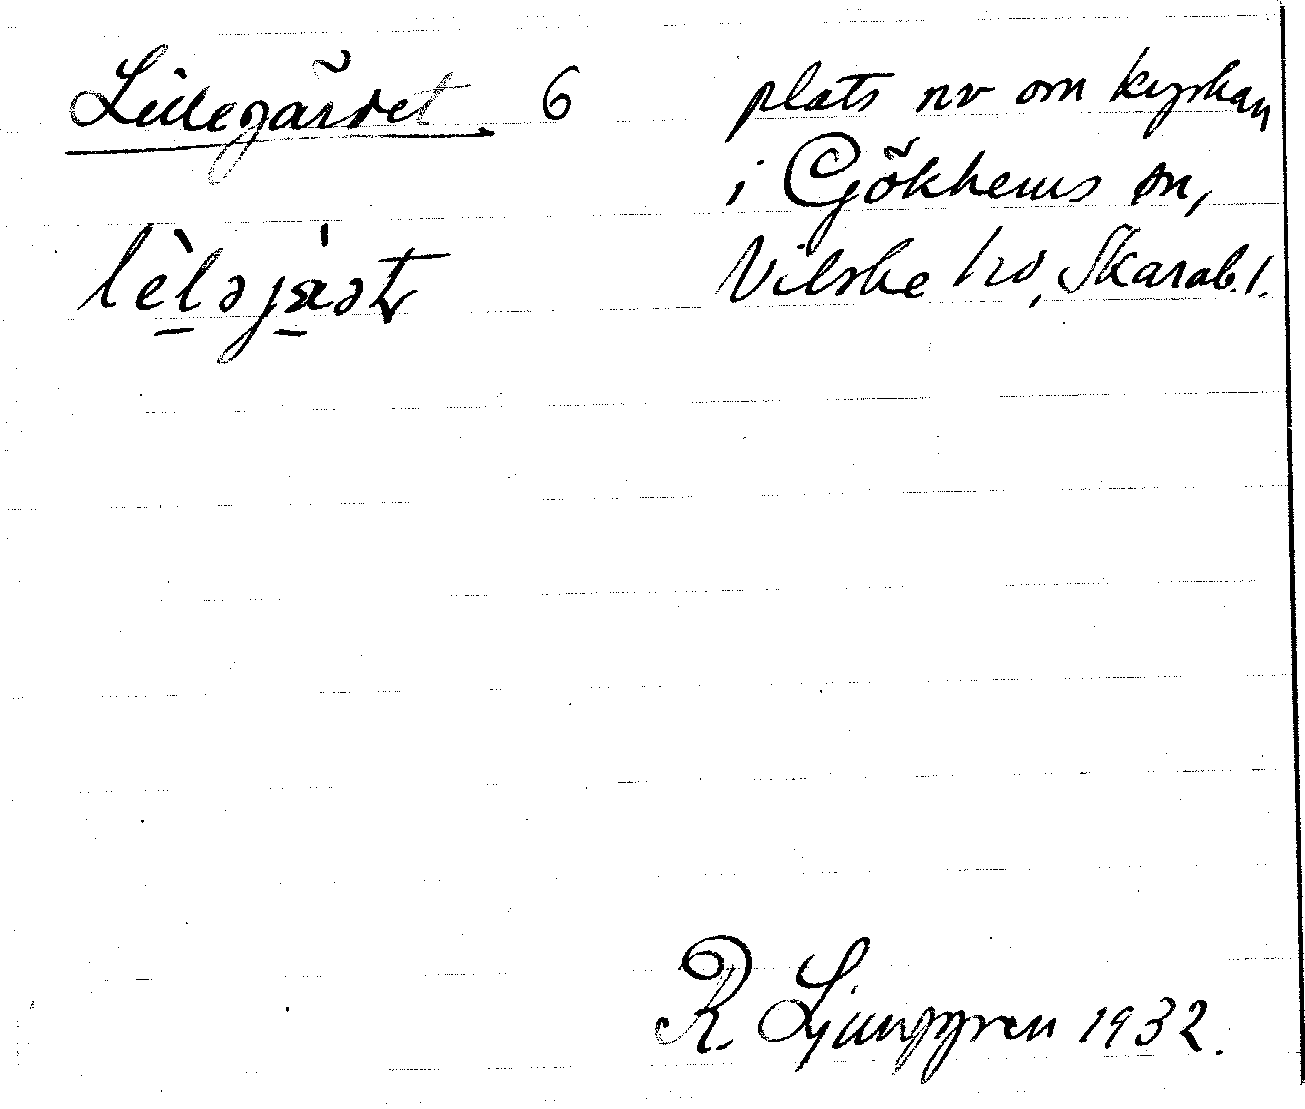 Lillegärdet. 6
plats nv om kyrkan
i Gökhems sn,
Vilske hd, Skarab. l.
lèləjæ̀ət
R. Ljunggren 1932.